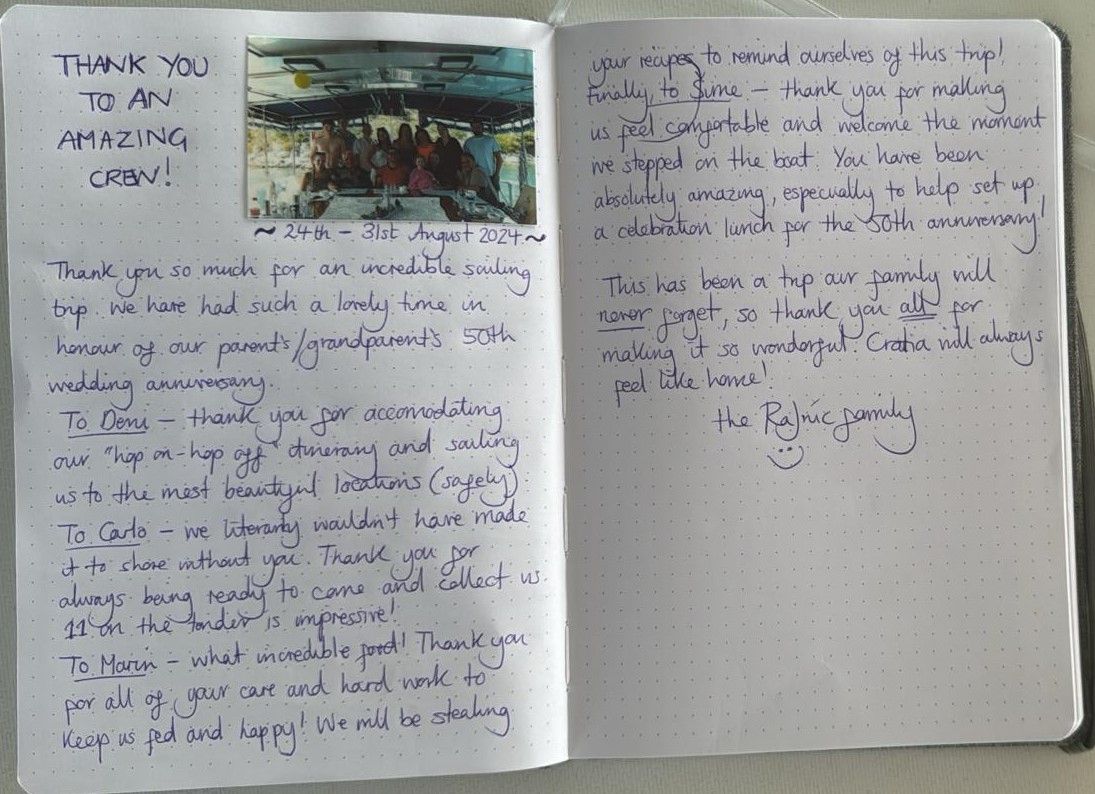 THANK YOU
TO AN
AMAZING
CREW!
~ 24th - 31st August 2024 ~
Thank you so much for an incredible sailing
trip. We have had such a lovely time in
honour of our parent's/grandparent's 50th
wedding anniversary.
To Deni - thank you for accomodating
our "hop on-hop off" itinerary and sailing
us to the most beautiful locations (safely)
To Carlo - we literarly wouldn't have made
it to shore without you. Thank you for
always being ready to come and collect us.
11 on the tender is impressive!
To Marin - what incredible food! Thank you
for all of your care and hard work to
keep us fed and happy! We will be stealing
your recipes to remind ourselves of this trip!
Finally, to Šime - thank you for making
us feel comfortable and welcome the moment
we stepped on the boat. You have been
absolutely amazing, especially to help set up
a celebration lunch for the 50th anniversary!
This has been a trip our family will
never forget, so thank you all for
making it so wonderful. Cratia will always
feel like home!
the Rajnic family